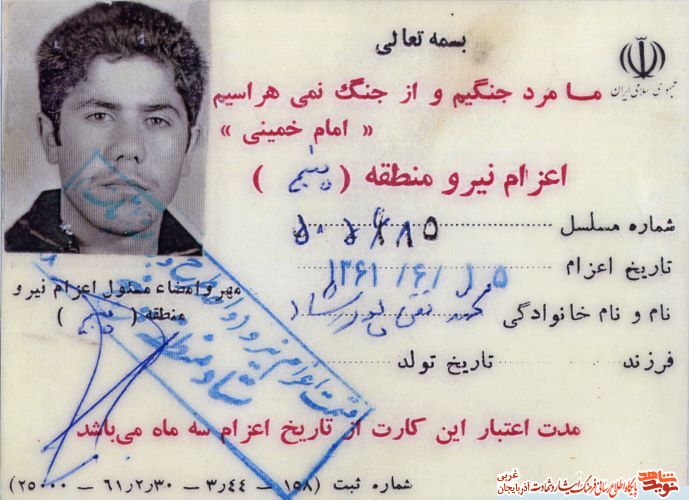 بسمه تعالی
جمهوری اسلامی ایران
ما مرد جنگیم و از جنگ نمی هراسیم
« امام خمینی »
اعزام نیرو منطقه ( پنجم )
شماره مسلسل
تاریخ اعزام ۱۳۶۱/۶/
نام و نام خانوادگی محمد تقی
فرزند تاریخ تولد
مهر و امضاء مسئول اعزام نیرو
منطقه ( پنجم )
اعزام نیرو
ستاد منطقه
مدت اعتبار این کارت از تاریخ اعزام سه ماه می‌باشد
شماره ثبت (۱۵۸ – ۳٫۴۴ – ۶۱/۲/۳۰ – ۲۵۰۰۰)
نوید شاهد
پایگاه اطلاع رسانی فرهنگ ایثار و شهادت آذربایجان غربی